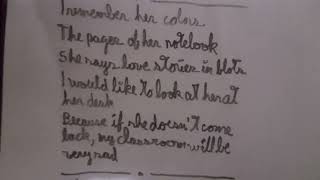 I remember her colors
The pages of her notebook
She says love stories in blots
I would like to look at her at
her desk
Because if she doesn't come
back, my classroom will be
very sad